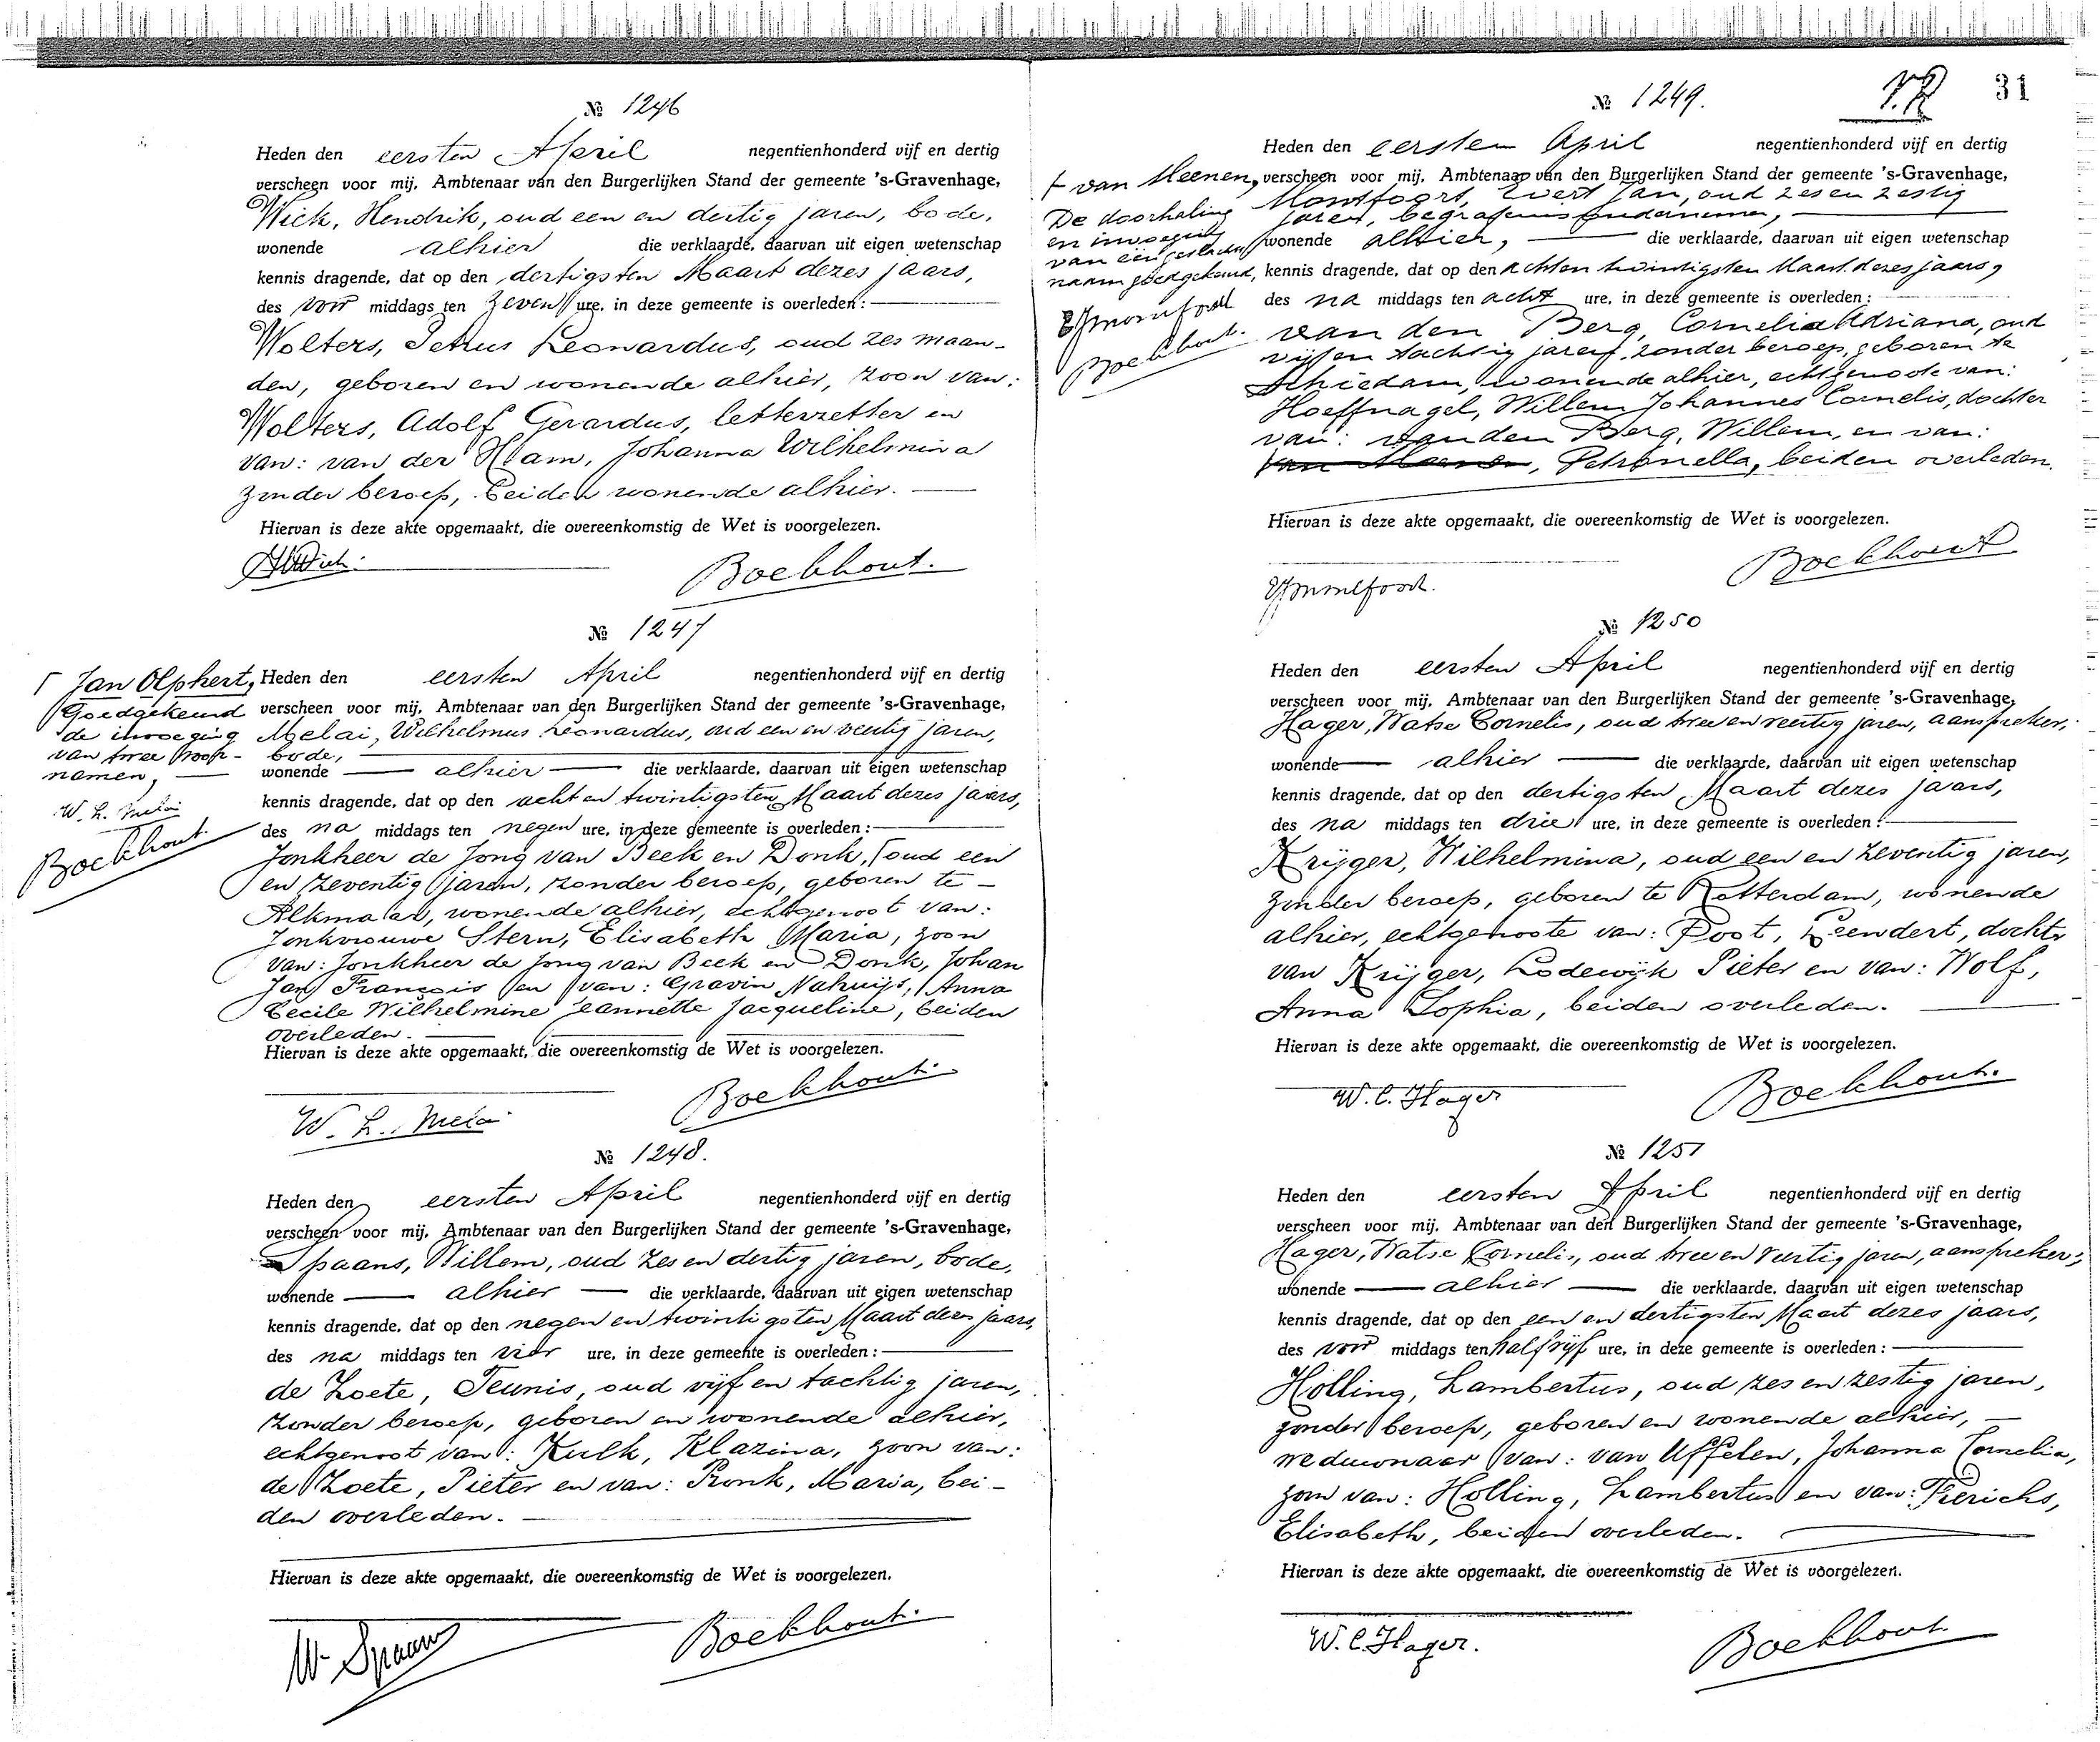 № 1246
Heden den eersten April negentienhonderd vijf en dertig
verscheen voor mij, Ambtenaar van den Burgerlijken Stand der gemeente 's-Gravenhage,
Wich, Hendrik, oud een en dertig jaren, bode,
wonende alhier die verklaarde, daarvan uit eigen wetenschap
kennis dragende, dat op den dertigsten Maart dezes jaars,
des voor middags ten zeven ure, in deze gemeente is overleden:
Wolters, Petrus Leonardus, oud zes maan-
den, geboren en wonende alhier, zoon van:
Wolters, Adolf Gerardus, letterzetter en
van: van der Ham, Johanna Wilhelmina
zonder beroep, beiden wonende alhier.
Hiervan is deze akte opgemaakt, die overeenkomstig de Wet is voorgelezen.
HWich. Boekhout.
№ 1247
Jan Olphert,
Goedgekeurd
de invoeging
van twee voor-
namen,
W. L. Melai
Boekhout.
Heden den eersten April negentienhonderd vijf en dertig
verscheen voor mij, Ambtenaar van den Burgerlijken Stand der gemeente 's-Gravenhage,
Melai, Wilhelmus Leonardus, oud een en veertig jaren,
bode,
wonende alhier die verklaarde, daarvan uit eigen wetenschap
kennis dragende, dat op den acht en twintigsten Maart dezes jaars,
des na middags ten negen ure, in deze gemeente is overleden:
Jonkheer de Jong van Beek en Donk, oud een
en zeventig jaren, zonder beroep, geboren te
Alkmaar, wonende alhier, echtgenoot van:
Jonkvrouwe Stern, Elisabeth Maria, zoon
van: Jonkheer de Jong van Beek en Donk, Johan
Jan François en van: Gravin Nahuijs, Anna
Cecile Wilhelmine Jeannette Jacqueline, beiden
overleden.
Hiervan is deze akte opgemaakt, die overeenkomstig de Wet is voorgelezen.
W. L. Melai Boekhout.
№ 1248.
Heden den eersten April negentienhonderd vijf en dertig
verscheen voor mij, Ambtenaar van den Burgerlijken Stand der gemeente 's-Gravenhage,
Spaans, Willem, oud zes en dertig jaren, bode,
wonende alhier die verklaarde, daarvan uit eigen wetenschap
kennis dragende, dat op den negen en twintigsten Maart dezes jaars,
des na middags ten vier ure, in deze gemeente is overleden:
de Zoete, Teunis, oud vijf en tachtig jaren,
zonder beroep, geboren en wonende alhier,
echtgenoot van: Kulk, Klazina, zoon van:
de Zoete, Pieter en van: Pronk, Maria, bei-
den overleden.
Hiervan is deze akte opgemaakt, die overeenkomstig de Wet is voorgelezen.
W. Spaans Boekhout.
31
№ 1249.
van Meenen,
De doorhaling
en invoeging
van één geslachts
naam goedgekeurd,
EJMontfoort
Boekhout.
Heden den eersten April negentienhonderd vijf en dertig
verscheen voor mij, Ambtenaar van den Burgerlijken Stand der gemeente 's-Gravenhage,
Montfoort, Evert Jan, oud zes en zestig
jaren, begrafenisondernemer,
wonende alhier, die verklaarde, daarvan uit eigen wetenschap
kennis dragende, dat op den achten twintigsten Maart dezes jaars,
des na middags ten acht ure, in deze gemeente is overleden:
van den Berg, Cornelia Adriana, oud
vijf en tachtig jaren, zonder beroep, geboren te
Schiedam, wonende alhier, echtgenoote van:
Hoeffnagel, Willem Johannes Cornelis, dochter
van: van den Berg, Willem, en van:
Petronella, beiden overleden.
Hiervan is deze akte opgemaakt, die overeenkomstig de Wet is voorgelezen.
EJMontfoort. Boekhout
№ 1250
Heden den eersten April negentienhonderd vijf en dertig
verscheen voor mij, Ambtenaar van den Burgerlijken Stand der gemeente 's-Gravenhage,
Hager, Watse Cornelis, oud twee en veertig jaren, aanspreker,
wonende alhier die verklaarde, daarvan uit eigen wetenschap
kennis dragende, dat op den dertigsten Maart dezes jaars,
des na middags ten drie ure, in deze gemeente is overleden:
Krijger, Wilhelmina, oud een en zeventig jaren,
zonder beroep, geboren te Rotterdam, wonende
alhier, echtgenoote van: Poot, Leendert, dochter
van Krijger, Lodewijk Pieter en van: Wolf,
Anna Sophia, beiden overleden.
Hiervan is deze akte opgemaakt, die overeenkomstig de Wet is voorgelezen.
W. C. Hager Boekhout.
№ 1251
Heden den eersten April negentienhonderd vijf en dertig
verscheen voor mij, Ambtenaar van den Burgerlijken Stand der gemeente 's-Gravenhage,
Hager, Watse Cornelis, oud twee en veertig jaren, aanspreker,
wonende alhier die verklaarde, daarvan uit eigen wetenschap
kennis dragende, dat op den een en dertigsten Maart dezes jaars,
des voor middags ten half vijf ure, in deze gemeente is overleden:
Holling, Lambertus, oud zes en zestig jaren,
zonder beroep, geboren en wonende alhier,
weduwnaar van: van Uffelen, Johanna Cornelia,
zoon van: Holling, Lambertus en van: Frerichs,
Elisabeth, beiden overleden.
Hiervan is deze akte opgemaakt, die overeenkomstig de Wet is voorgelezen.
W. C. Hager. Boekhout.